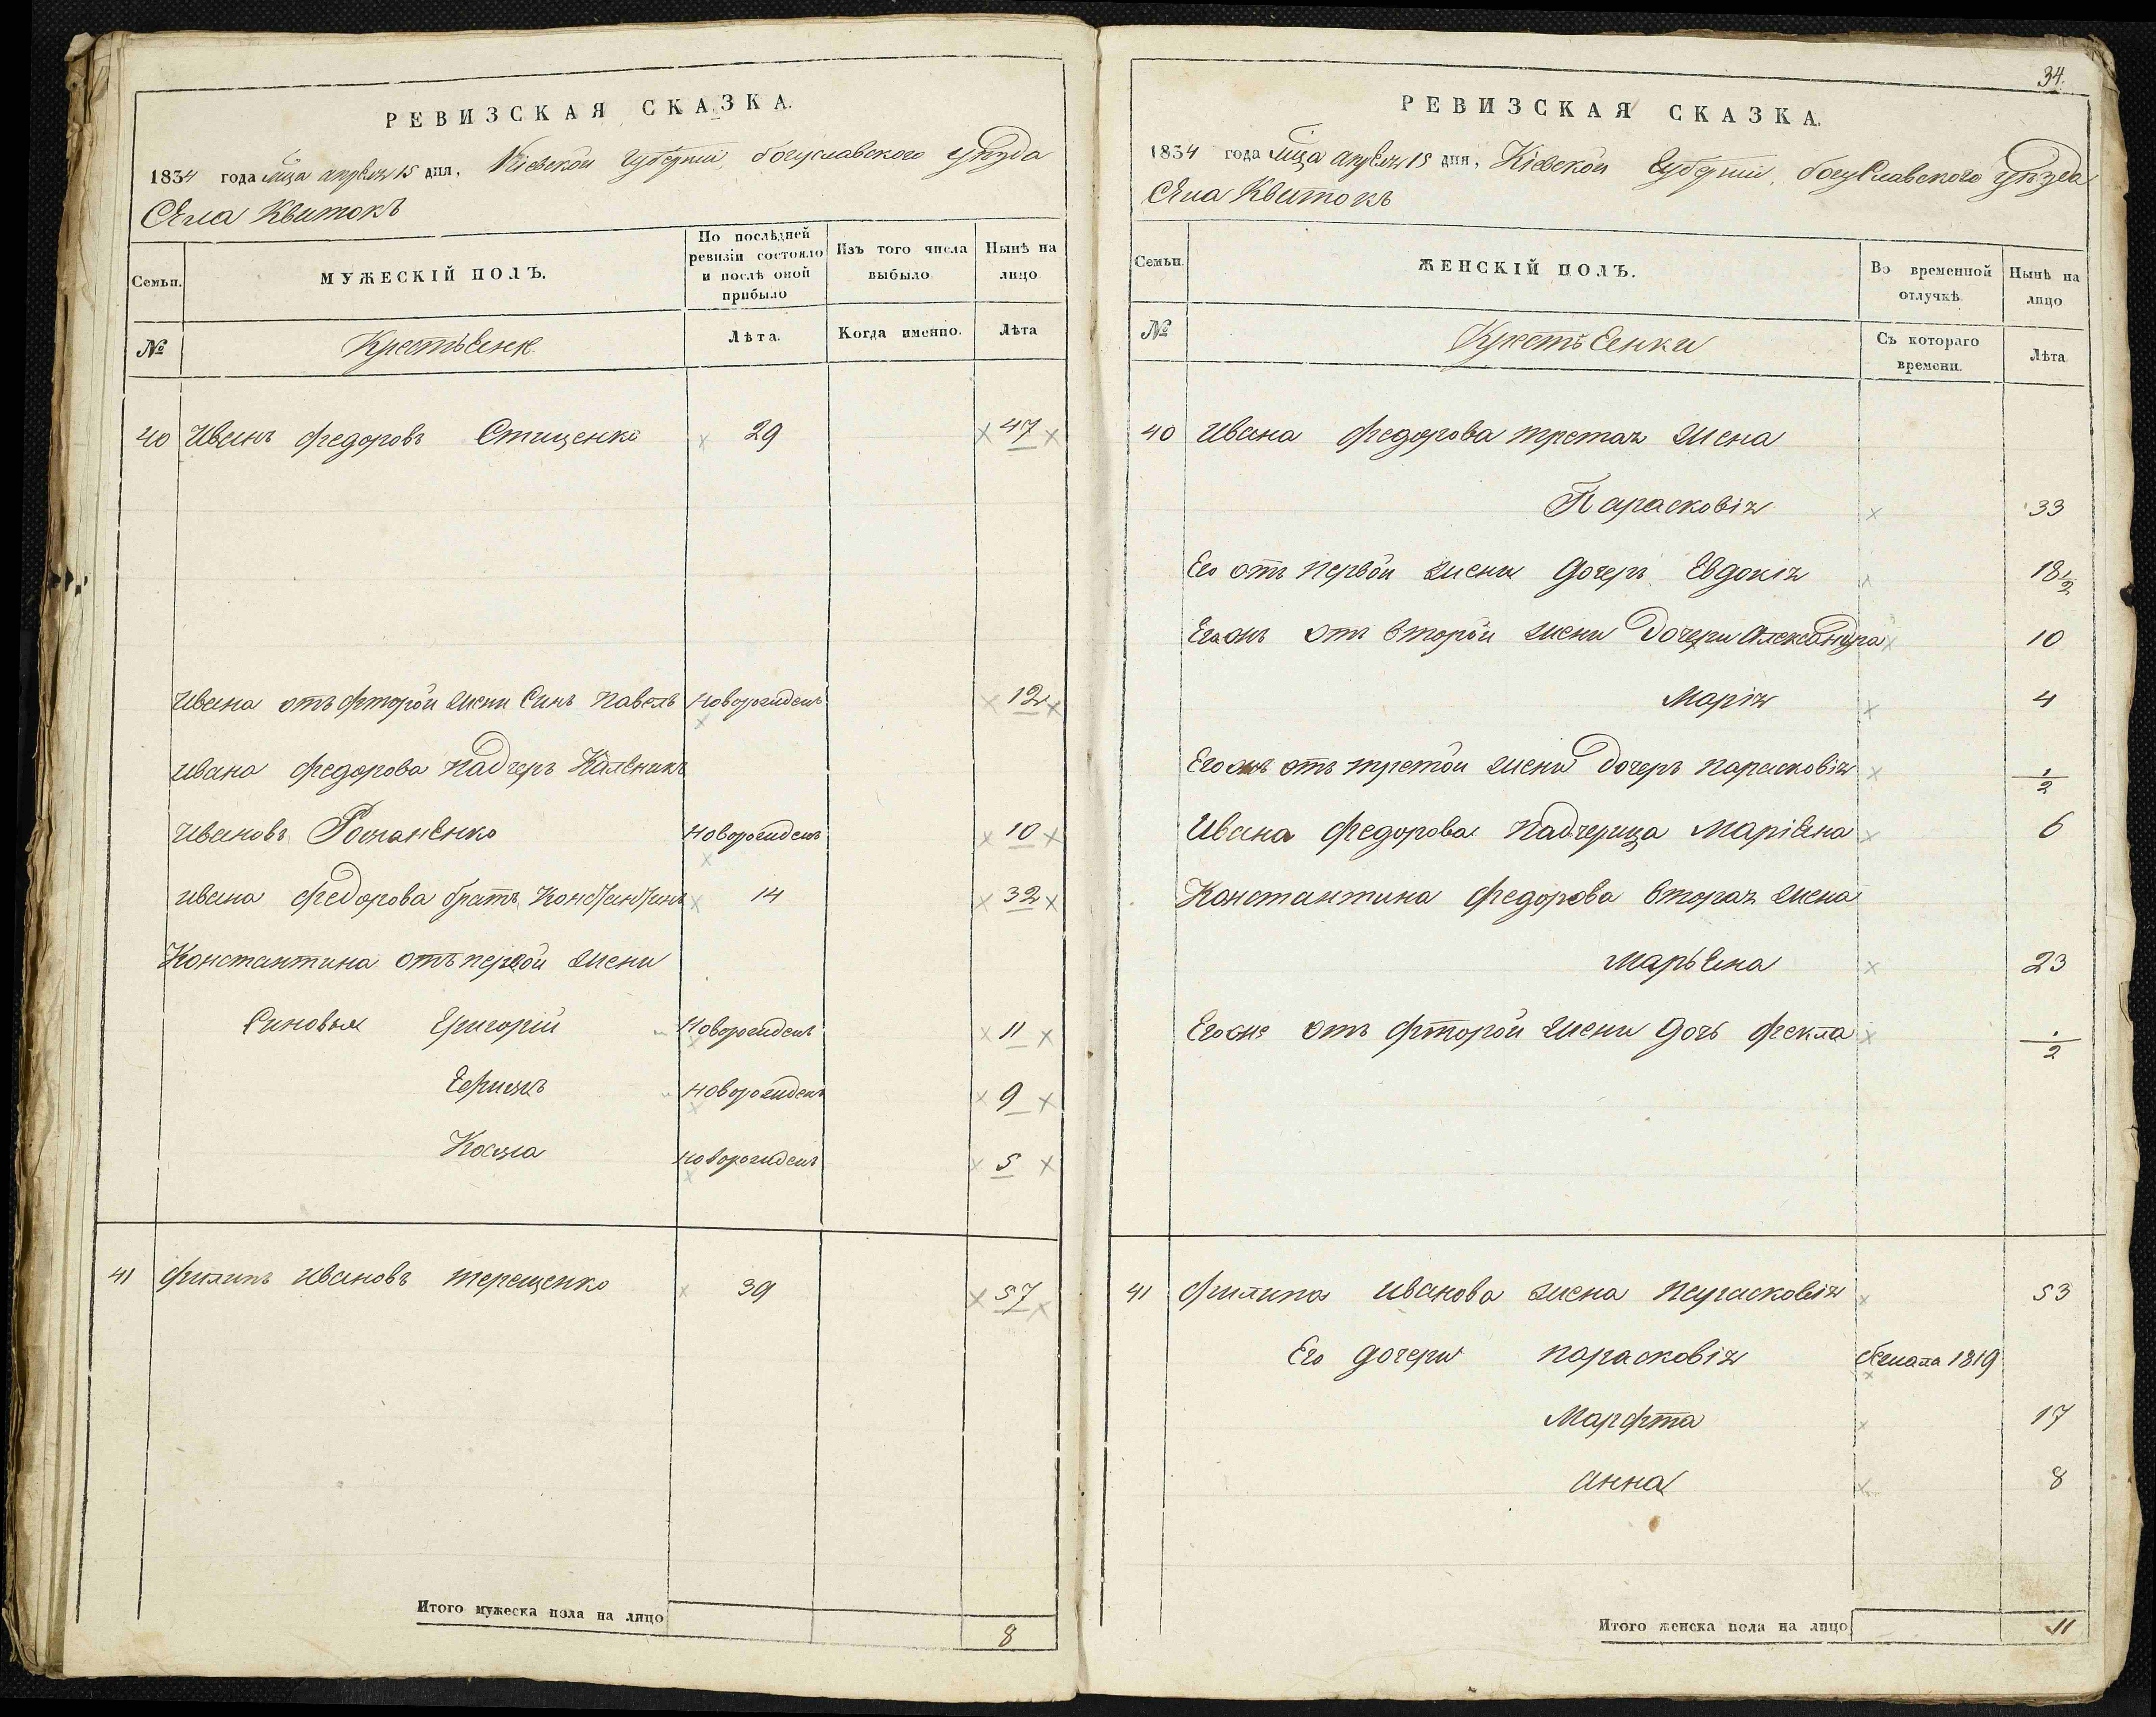 РЕВИЗСКАЯ СКАЗКА.
1834 года мца апреля 15 дня, Кіевской губерніи, богуславского уѣзда
Села Квитокъ
Семьи.
МУЖЕСКІЙ ПОЛЪ.
По послѣдней ревизіи состояло и послѣ оной прибыло
Изъ того числа выбыло
Нынѣ на лицо
№
Крестьяне
Лѣта.
Когда именно.
Лѣта
40 Иванъ федоровъ Стищенко 29 47
Ивана отъ фторой жени Синъ павелъ новорожденъ 12
ивана федорова падчеръ
Ивановъ Романенко новорожденъ 10
ивана федорова братъ Константинъ 14 32
Константина отъ первой жени
Синовья Григорій новорожденъ 11
Ефимъ новорожденъ 9
Косма новорожденъ 5
41 филипъ ивановъ терещенко 39 57
Итого мужеска пола на лицо 8
34.
РЕВИЗСКАЯ СКАЗКА.
1834 года мца апреля 15 дня, Кіевской губерніи, богуславского уѣзда
Села Квитокъ
Семьи.
ЖЕНСКІЙ ПОЛЪ.
Во временной отлучкѣ.
Нынѣ на лицо
№
Крестьянки
Съ котораго времени.
Лѣта
40 ивана федорова третая жена
Парасковія 33
Его отъ первой жени дочеръ Евдокія 18 1/2
Его онъ отъ второй жени дочери александра 10
Марія 4
Его онъ отъ третой жени дочеръ парасковія 1/2
Ивана федорова падчерица маріяна 6
Константина федорова вторая жена
марьяна 23
Его онъ отъ фторой жени дочь фекла 1/2
41 филипа иванова жена парасковія 53
Его дочери парасковія бежала 1819
Марфта 17
анна 8
Итого женска пола на лицо 11